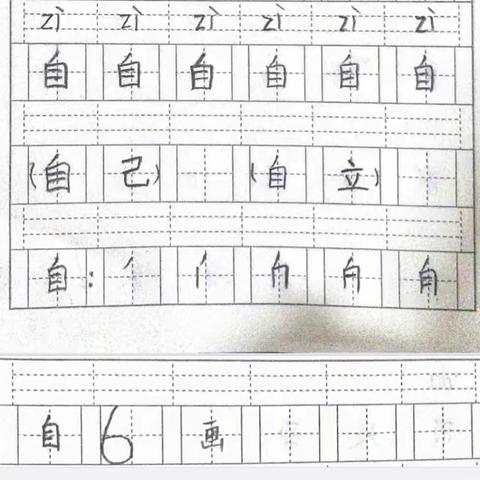 zì zì zì zì zì zì
自 自 自 自 自 自
(自 己) (自 立)
自: ′ 亻 冇 甪 自
自 6 画